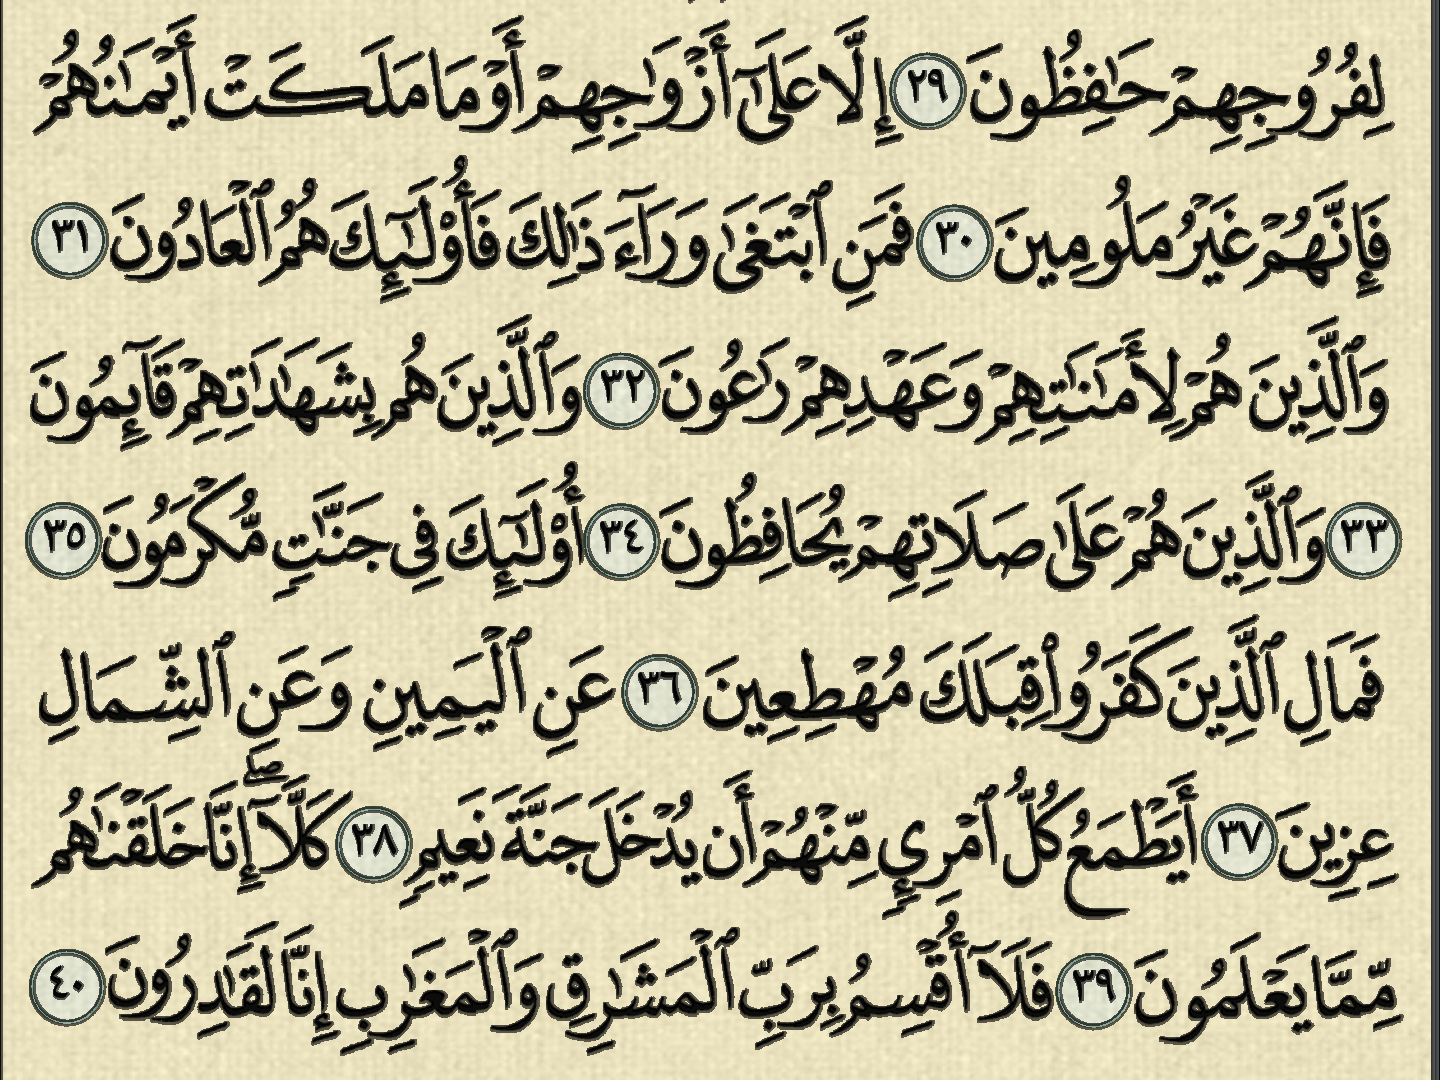 لِفُرُوجِهِمْ حَٰفِظُونَ ٢٩ إِلَّا عَلَىٰٓ أَزْوَٰجِهِمْ أَوْ مَا مَلَكَتْ أَيْمَٰنُهُمْ
فَإِنَّهُمْ غَيْرُ مَلُومِينَ ٣٠ فَمَنِ ٱبْتَغَىٰ وَرَآءَ ذَٰلِكَ فَأُو۟لَٰٓئِكَ هُمُ ٱلْعَادُونَ ٣١
وَٱلَّذِينَ هُمْ لِأَمَٰنَٰتِهِمْ وَعَهْدِهِمْ رَٰعُونَ ٣٢ وَٱلَّذِينَ هُم بِشَهَٰدَٰتِهِمْ قَآئِمُونَ
٣٣ وَٱلَّذِينَ هُمْ عَلَىٰ صَلَاتِهِمْ يُحَافِظُونَ ٣٤ أُو۟لَٰٓئِكَ فِى جَنَّٰتٍ مُّكْرَمُونَ ٣٥
فَمَالِ ٱلَّذِينَ كَفَرُوا۟ قِبَلَكَ مُهْطِعِينَ ٣٦ عَنِ ٱلْيَمِينِ وَعَنِ ٱلشِّمَالِ
عِزِينَ ٣٧ أَيَطْمَعُ كُلُّ ٱمْرِئٍ مِّنْهُمْ أَن يُدْخَلَ جَنَّةَ نَعِيمٍ ٣٨ كَلَّآ ۖ إِنَّا خَلَقْنَٰهُم
مِّمَّا يَعْلَمُونَ ٣٩ فَلَآ أُقْسِمُ بِرَبِّ ٱلْمَشَٰرِقِ وَٱلْمَغَٰرِبِ إِنَّا لَقَٰدِرُونَ ٤٠